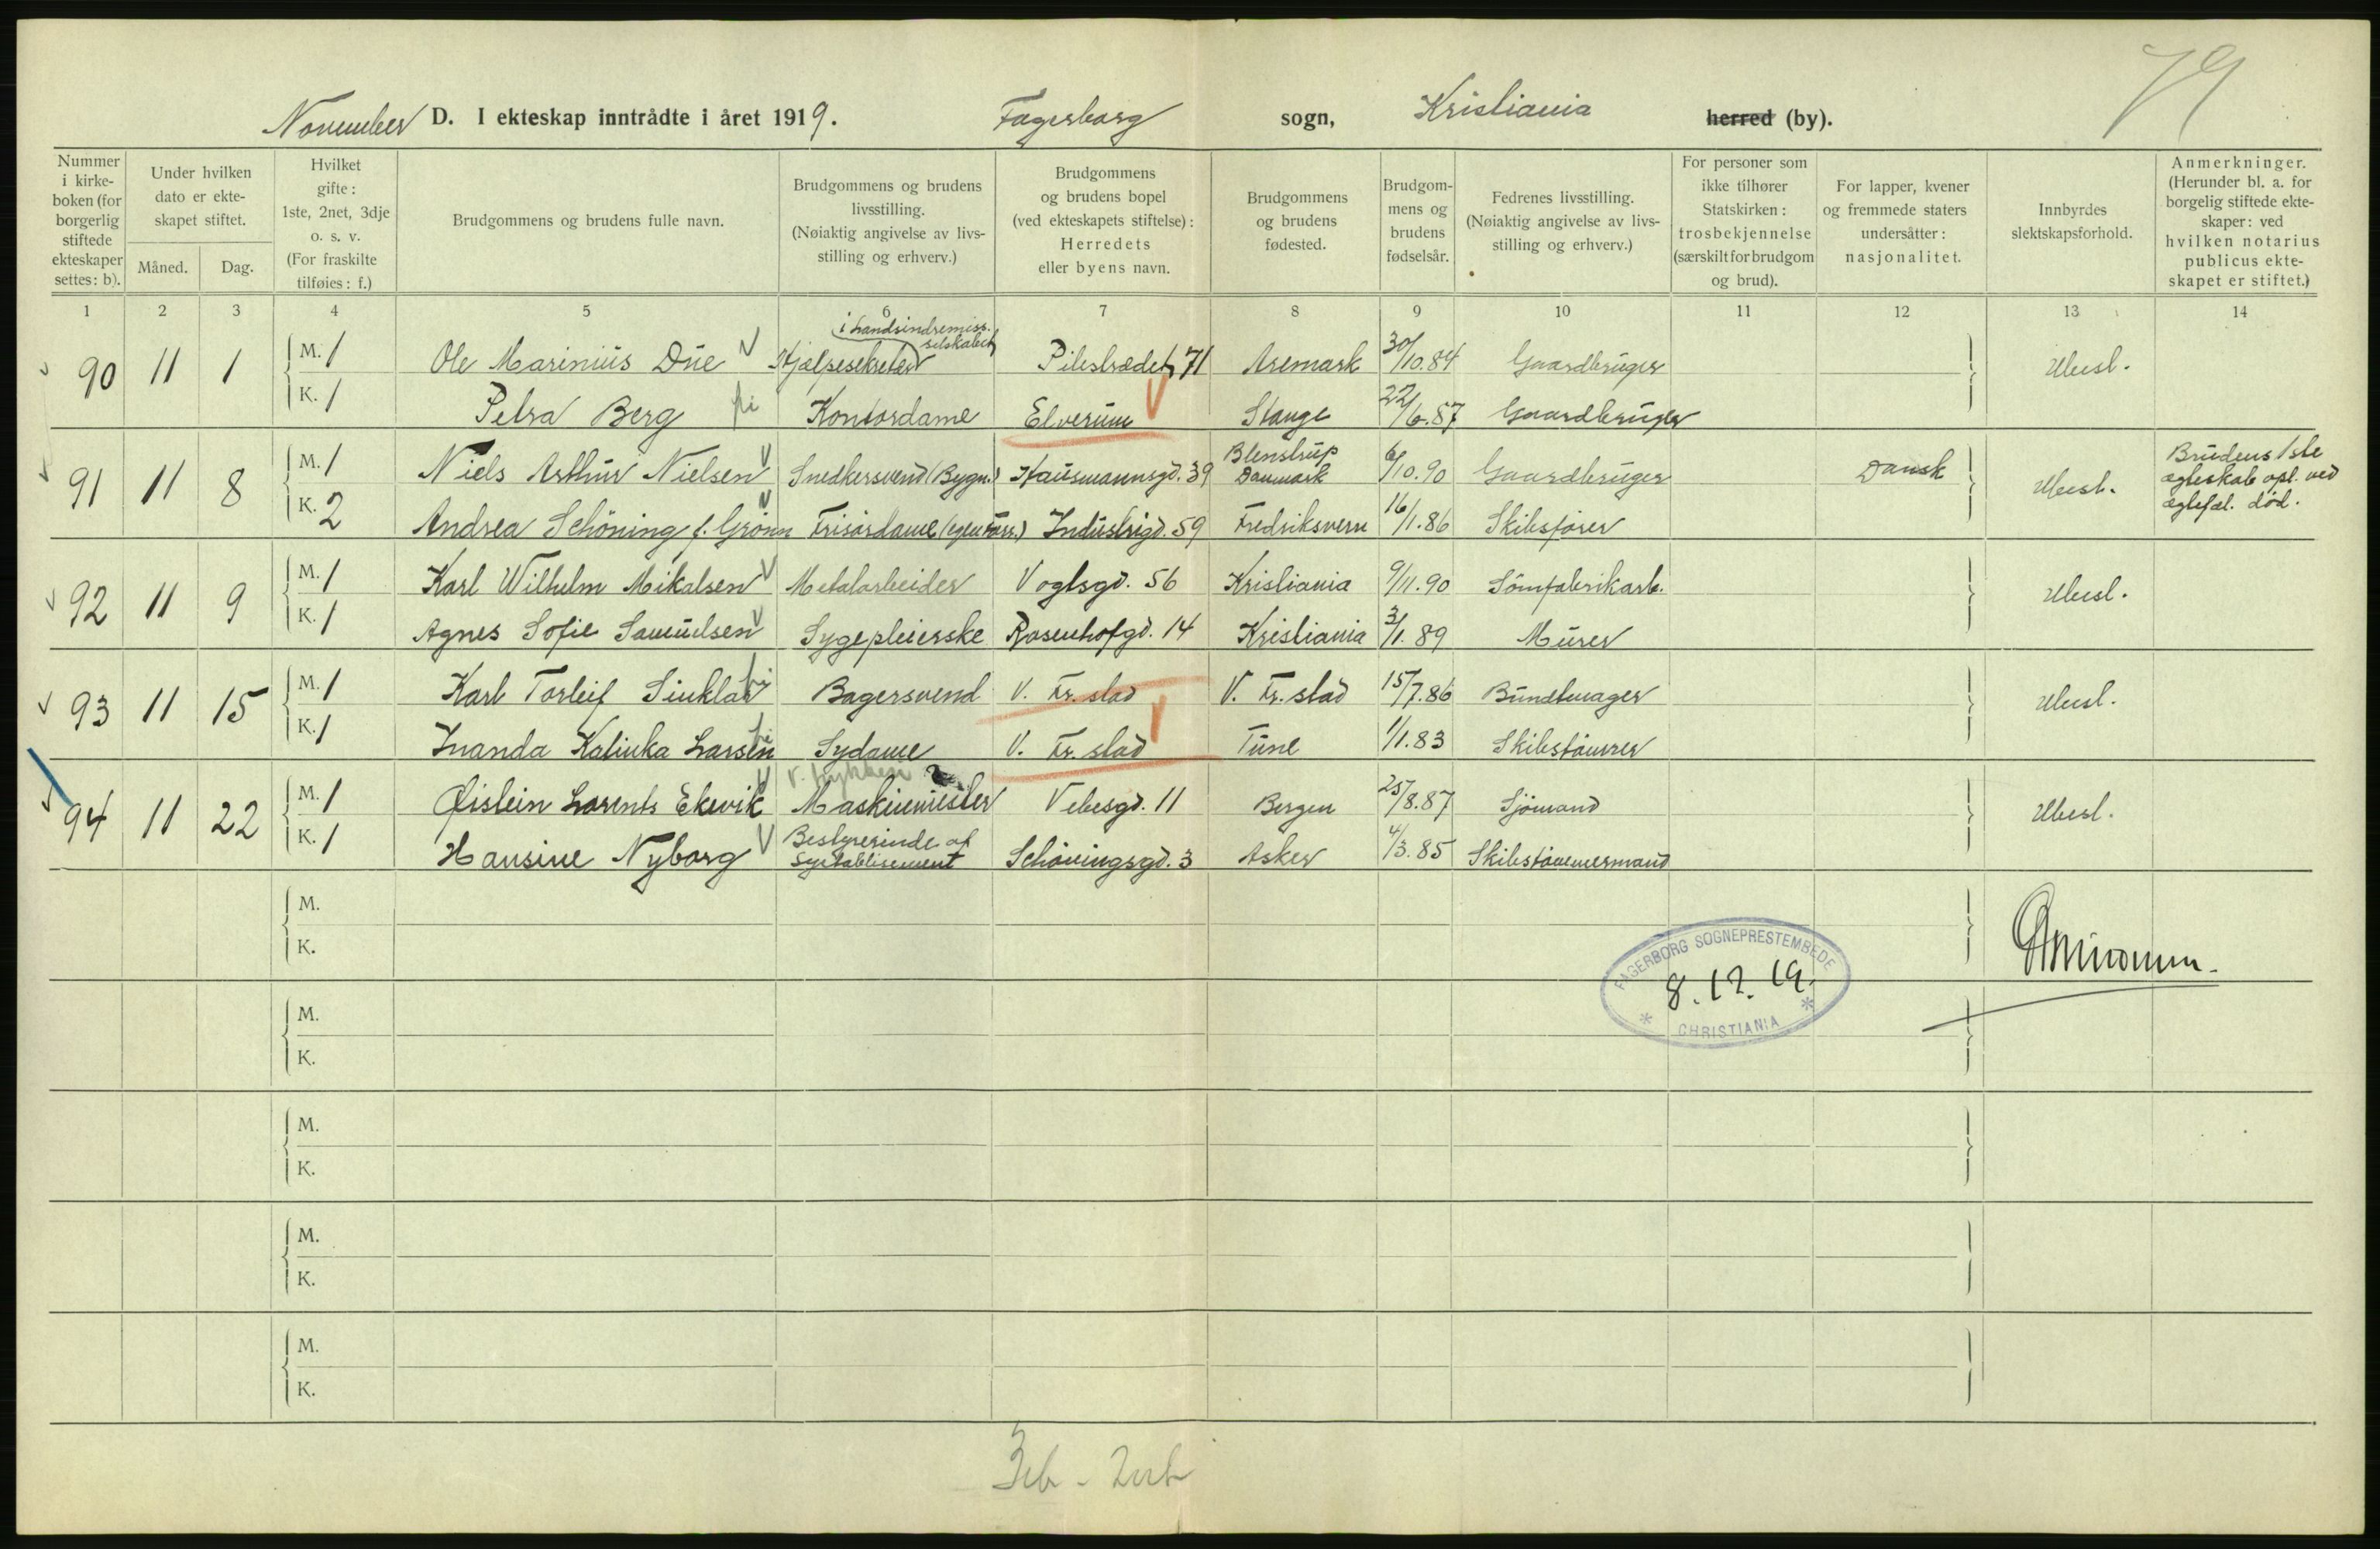 79
November D. I ekteskap inntrådte i året 1919. Fagerborg sogn, Kristiania herred (by).
Nummer i kirkeboken (for borgerlig stiftede ekteskaper settes: b).
Under hvilken dato er ekteskapet stiftet.
Måned. Dag.
Hvilket gifte: 1ste, 2net, 3dje o. s. v. (For fraskilte tilføies: f.)
Brudgommens og brudens fulle navn.
Brudgommens og brudens livsstilling. (Nøiaktig angivelse av livsstilling og erhverv.)
Brudgommens og brudens bopel (ved ekteskapets stiftelse): Herredets eller byens navn.
Brudgommens og brudens fødested.
Brudgommens og brudens fødselsår.
Fedrenes livsstilling. (Nøiaktig angivelse av livsstilling og erhverv.)
For personer som ikke tilhører Statskirken: trosbekjennelse (særskilt for brudgom og brud).
For lapper, kvener og fremmede staters undersåtter: nasjonalitet.
Innbyrdes slektskapsforhold.
Anmerkninger. (Herunder bl. a. for borgelig stiftede ekteskaper: ved hvilken notarius publicus ekteskapet er stiftet.)
1 2 3 4 5 6 7 8 9 10 11 12 13 14
i Landsindremiss. selskabet
90 11 1 M. 1 Ole Marinius Due Hjælpesekretær Pilestrædet 71 Aremark 30/10.84 Gaardbruger Ubesl.
K. 1 Petra Berg fri Kontordame Elverum Stange 22/6.87 Gaardbruger
91 11 8 M. 1 Niels Arthur Nielsen Snedkersvend (Bygn.) Hausmannsgd. 39 Blenstrup Danmark 6/10.90 Gaardbruger Dansk Ubesl. Brudens 1ste egteskab opl. ved egtefæl. død.
K. 2 Andrea Schöning f. Grönn Frisördame (egen forr.) Industrigd. 59 Fredriksvern 16/1.86 Skibsfører
92 11 9 M. 1 Karl Wilhelm Mikalsen Metalarbeider Vogtsgd. 56 Kristiania 9/11.90 Sömfabrikarb. Ubesl.
K. 1 Agnes Sofie Samuelsen Sygepleierske Rosenhofgd. 14 Kristiania 3/1.89 Murer
93 11 15 M. 1 Karl Torleif Sinklar fri Bagersvend V. Fr.stad V. Fr.stad 15/7.86 Bundtmager Ubesl.
K. 1 Inanda Katinka Larsen fri Sydame V. Fr.stad Tune 1/1.83 Skibstömrer
94 11 22 M. 1 Øistein Lorents Ekevik Maskinmester Vibesgd. 11 Bergen 25/8.87 Sjömand Ubesl.
K. 1 Hansine Nyborg Bestyrerinde af Syetablisement Schöningsgd. 3 Asker 4/3.85 Skibstömmermand
M.
K.
FAGERBORG SOGNEPRESTEMBEDE
8.12.19.
* CHRISTIANIA *
M.
K.
M.
K.
M.
K.
M.
K.